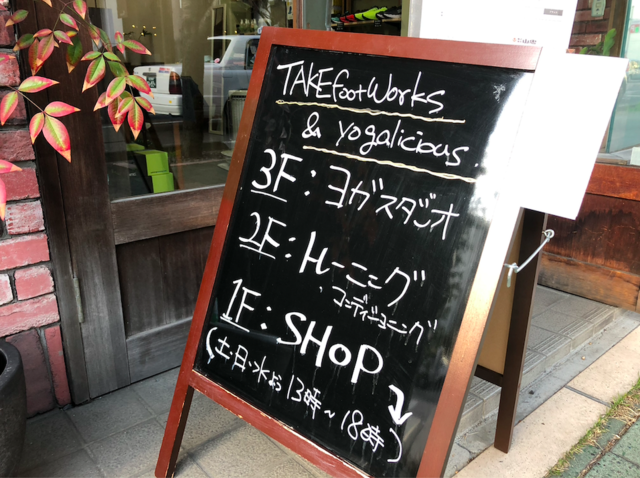 TAKEfootWorks
& yogalicious.
3F:ヨガスタジオ
2F:トレーニング
コンディショニング
1F:SHOP
(土・日・水は13時~18時)